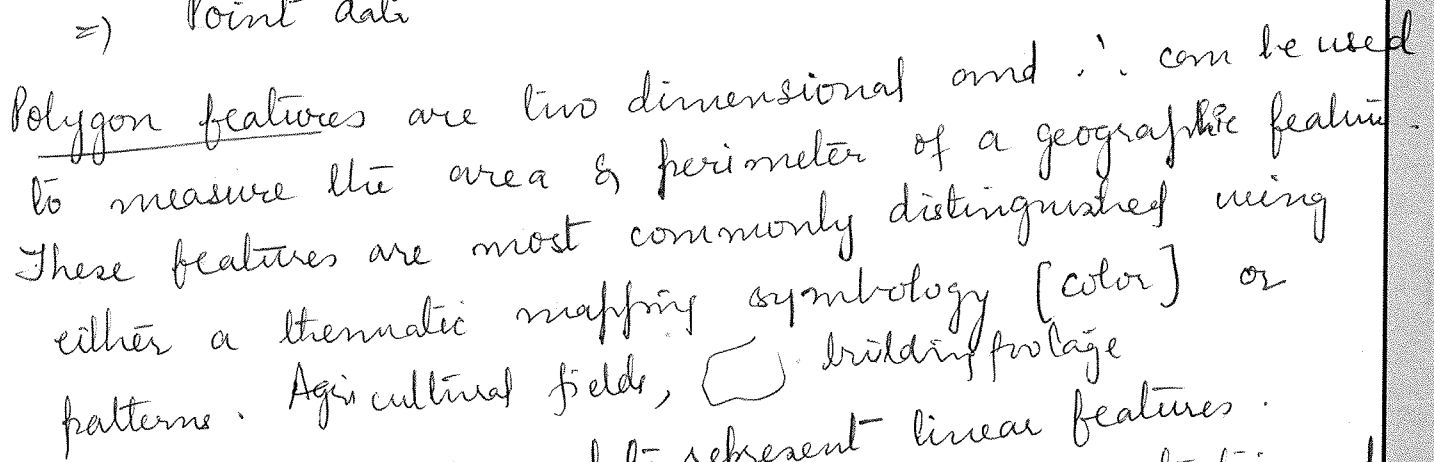 =) Point data
Polygon features are two dimensional and ∴ can be used
to measure the area & perimeter of a geographic feature.
These features are most commonly distinguished using
either a thematic mapping symbology [color] or
patterns. Agricultural fields, building footage
represent linear features.